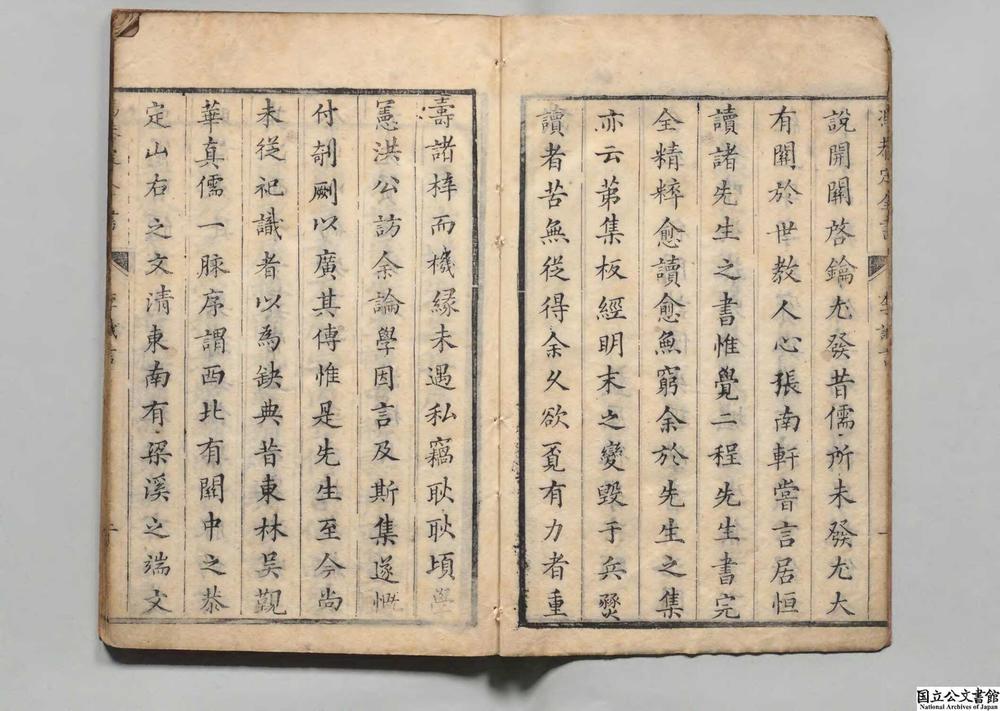 馮恭定全書
說開關啓鑰尤發昔儒所未發尤大
有關於世教人心張南軒嘗言居恒
讀諸先生之書惟覺二程先生書完
全精粹愈讀愈無窮余於先生之集
亦云苐集板經明末之變毀于兵燹
讀者苦無從得余久欲覓有力者重
壽諸梓而機緣未遇私竊耿耿頃學
憲洪公訪余論學因言及斯集遂慨
付剞劂以廣其傳惟是先生至今尚
未從祀識者以為缺典昔東林吴觀
華真儒一脉序謂西北有關中之恭
定山右之文清東南有梁溪之端文
国立公文書館
National Archives of Japan